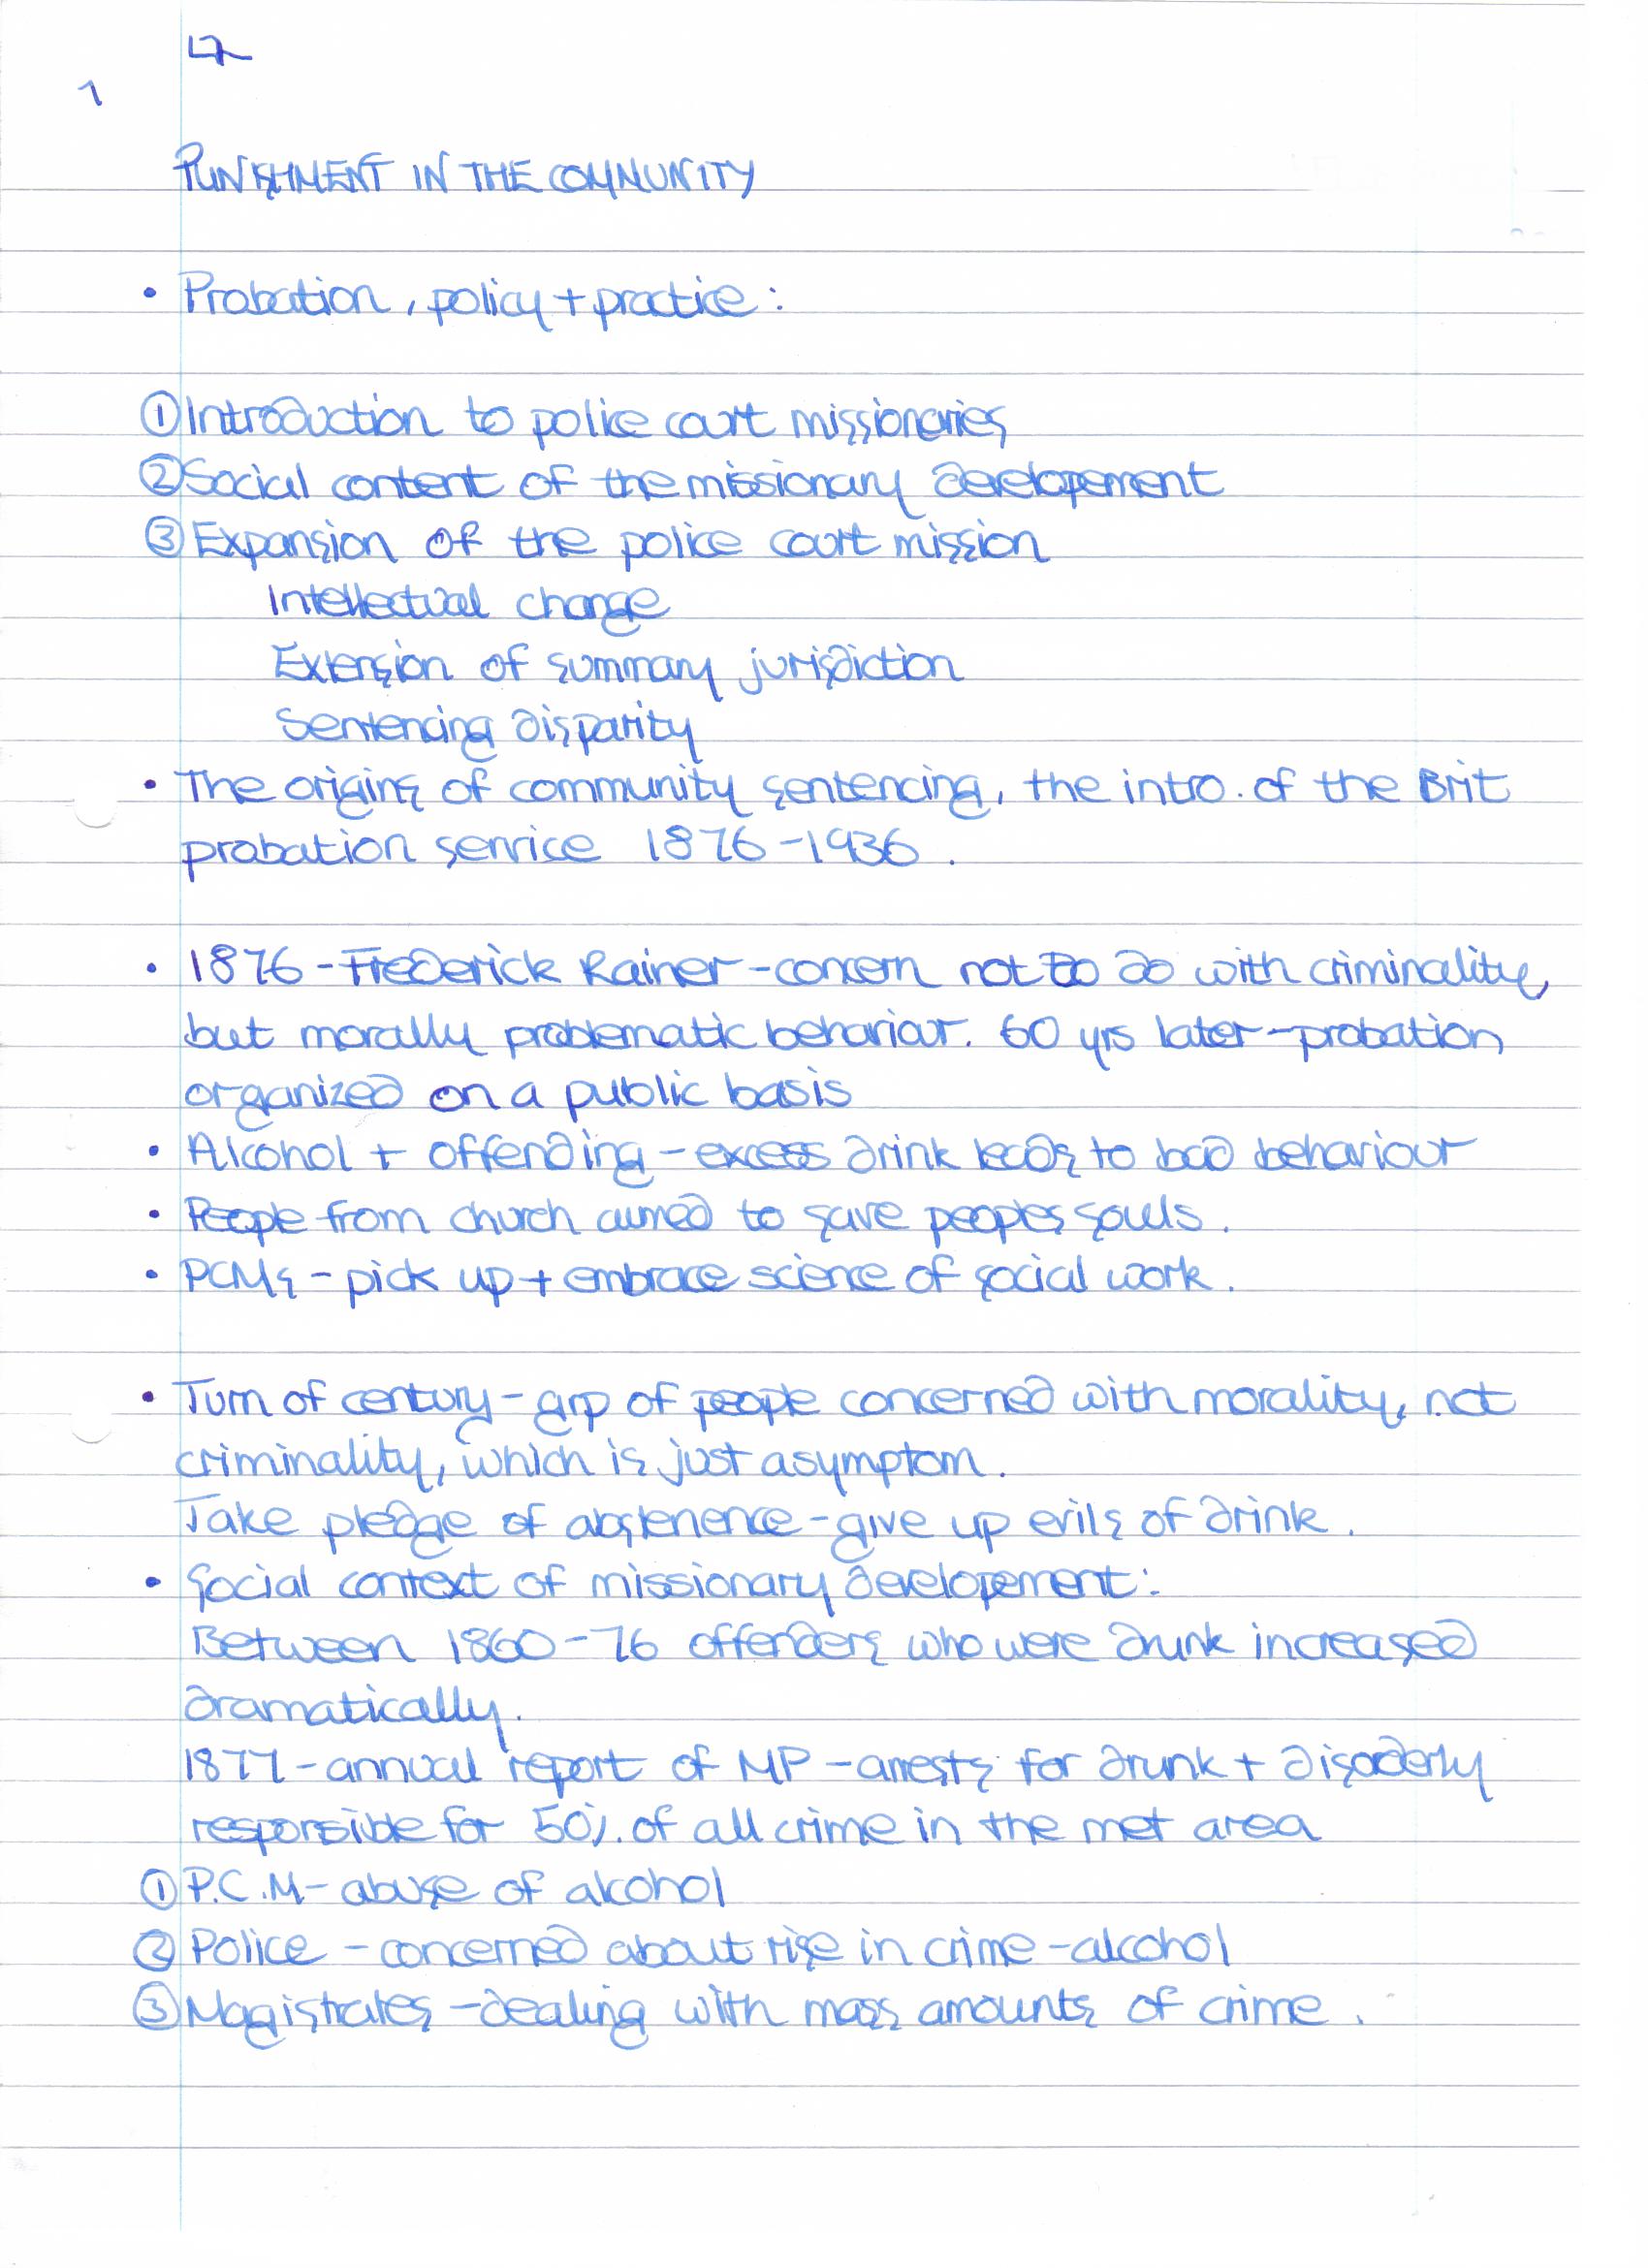 L7
1
PUNISHMENT IN THE COMMUNITY
• Probation, policy + practice:
① Introduction to police court missionaries
② Social content of the missionary developement
③ Expansion of the police court mission
Intellectual change
Extension of summary jurisdiction
Sentencing disparity
• The origins of community sentencing, the intro. of the Brit
probation service 1876-1936.
• 1876 - Frederick Rainer - concern not to do with criminality,
but morally problematic behaviour. 60 yrs later - probation
organized on a public basis
• Alcohol + offending - excess drink leads to bad behaviour
• People from church aimed to save peoples souls.
• PCMs - pick up + embrace science of social work.
• Turn of century - grp of people concerned with morality, not
criminality, which is just a symptom.
Take pledge of abstenence - give up evils of drink.
• Social context of missionary developement:
Between 1860-76 offenders who were drunk increased
dramatically.
1877 - annual report of MP - arrests for drunk + disorderly
responsible for 50% of all crime in the met area
① P.C.M - abuse of alcohol
② Police - concerned about rise in crime - alcohol
③ Magistrates - dealing with mass amounts of crime.